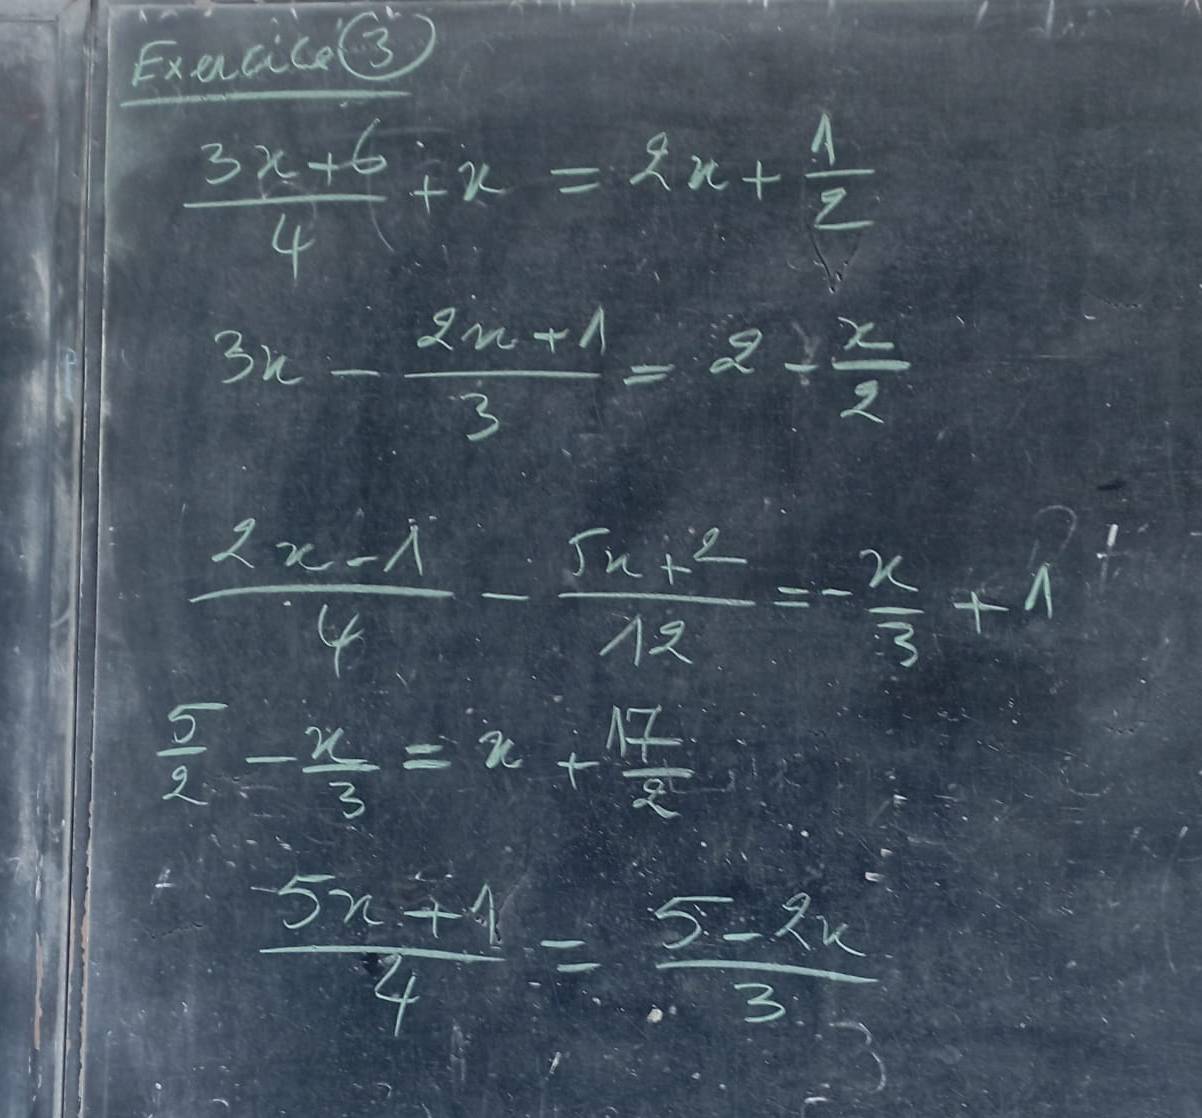 Exercice ③
(3x+6)/4 + x = 2x + 1/2
3x - (2x+1)/3 = 2 - x/2
(2x-1)/4 - (5x+2)/12 = -x/3 + 1
5/2 - x/3 = x + 17/2
(5x+1)/4 = (5-2x)/3